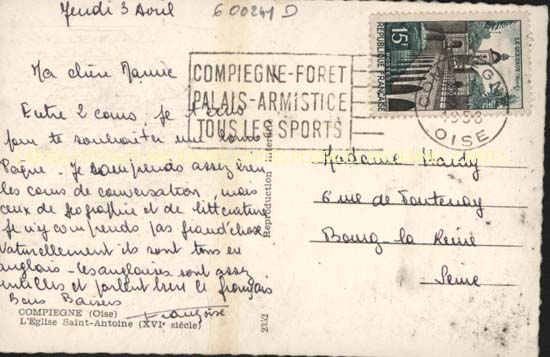 Jeudi 3 Avril
600241 D
Ma chère Mamie
Entre 2 cours, je t'écris
pour te souhaiter une bonne
Pâque - Je comprends assez bien
les cours de conversation, mais
ceux de géographie et de littérature
je n'y comprends pas grand'chose
Naturellement ils sont tous en
anglais - les anglaises sont assez
gentilles et parlent bien le français
Bons Baisers
Françoise
COMPIEGNE (Oise)
L'Eglise Saint-Antoine (XVIe siècle)
2352
Reproduction interdite
COMPIEGNE-FORET
PALAIS-ARMISTICE
TOUS LES SPORTS
15F
REPUBLIQUE FRANÇAISE
POSTES
LE QUESNOY (NORD)
OISE
Madame Hardy
6 rue de Fontenay
Bourg-la Reine
Seine